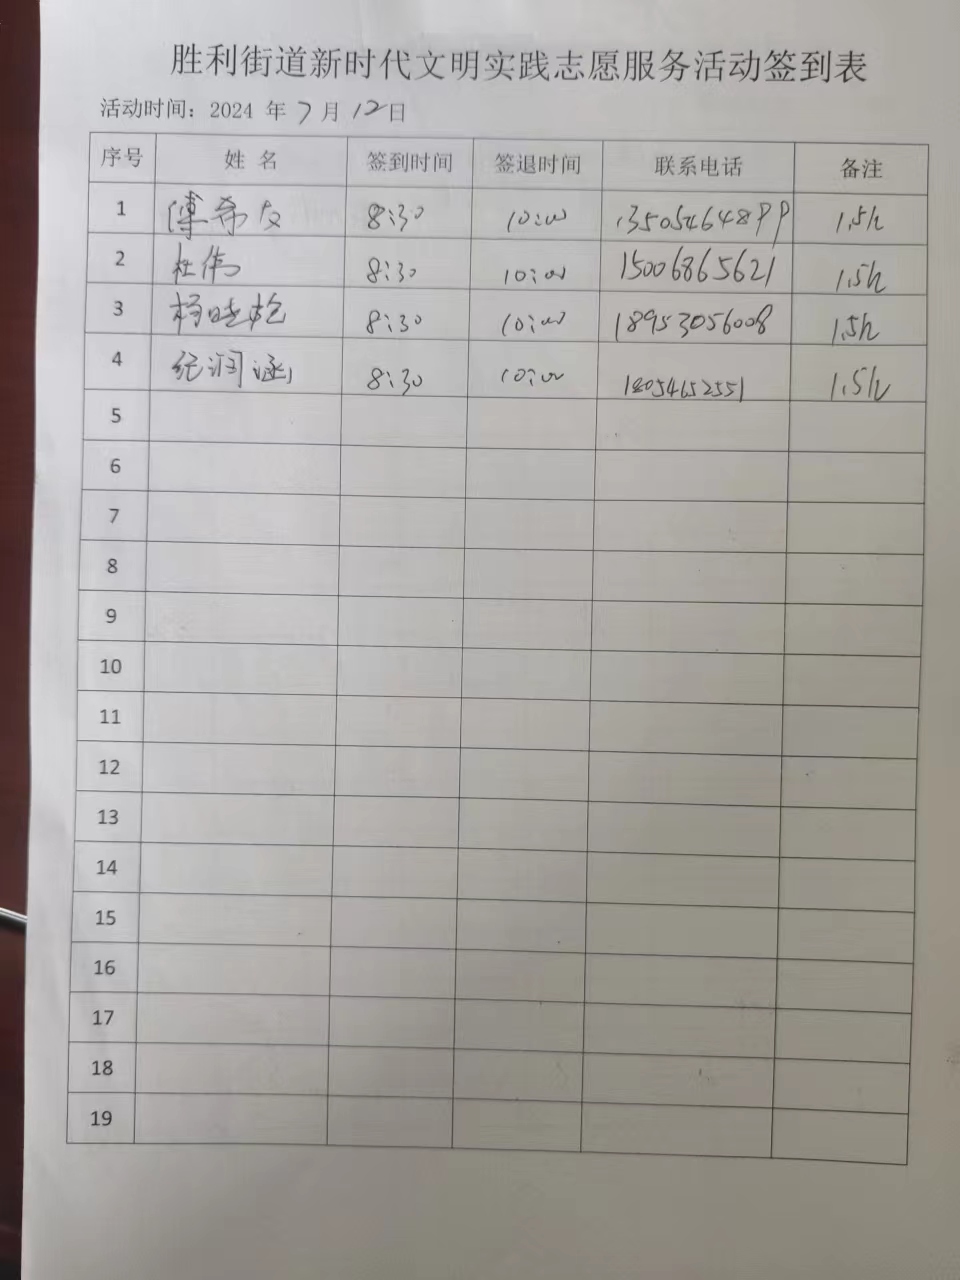 胜利街道新时代文明实践志愿服务活动签到表
活动时间：2024 年 7 月 12 日
序号 姓 名 签到时间 签退时间 联系电话 备注
1 傅希友 8:30 10:00 13505464899 1.5h
2 杜伟 8:30 10:00 15006865621 1.5h
3 杨晓艳 8:30 10:00 18953056008 1.5h
4 纪润涵 8:30 10:00 18054652551 1.5h
5
6
7
8
9
10
11
12
13
14
15
16
17
18
19